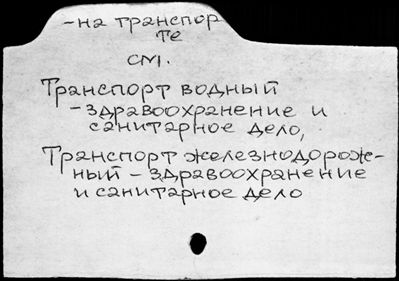 -на транспор
те
см.
Транспорт водный
-здравоохранение и
санитарное дело,
Транспорт железнодорож-
ный - здравоохранение
и санитарное дело